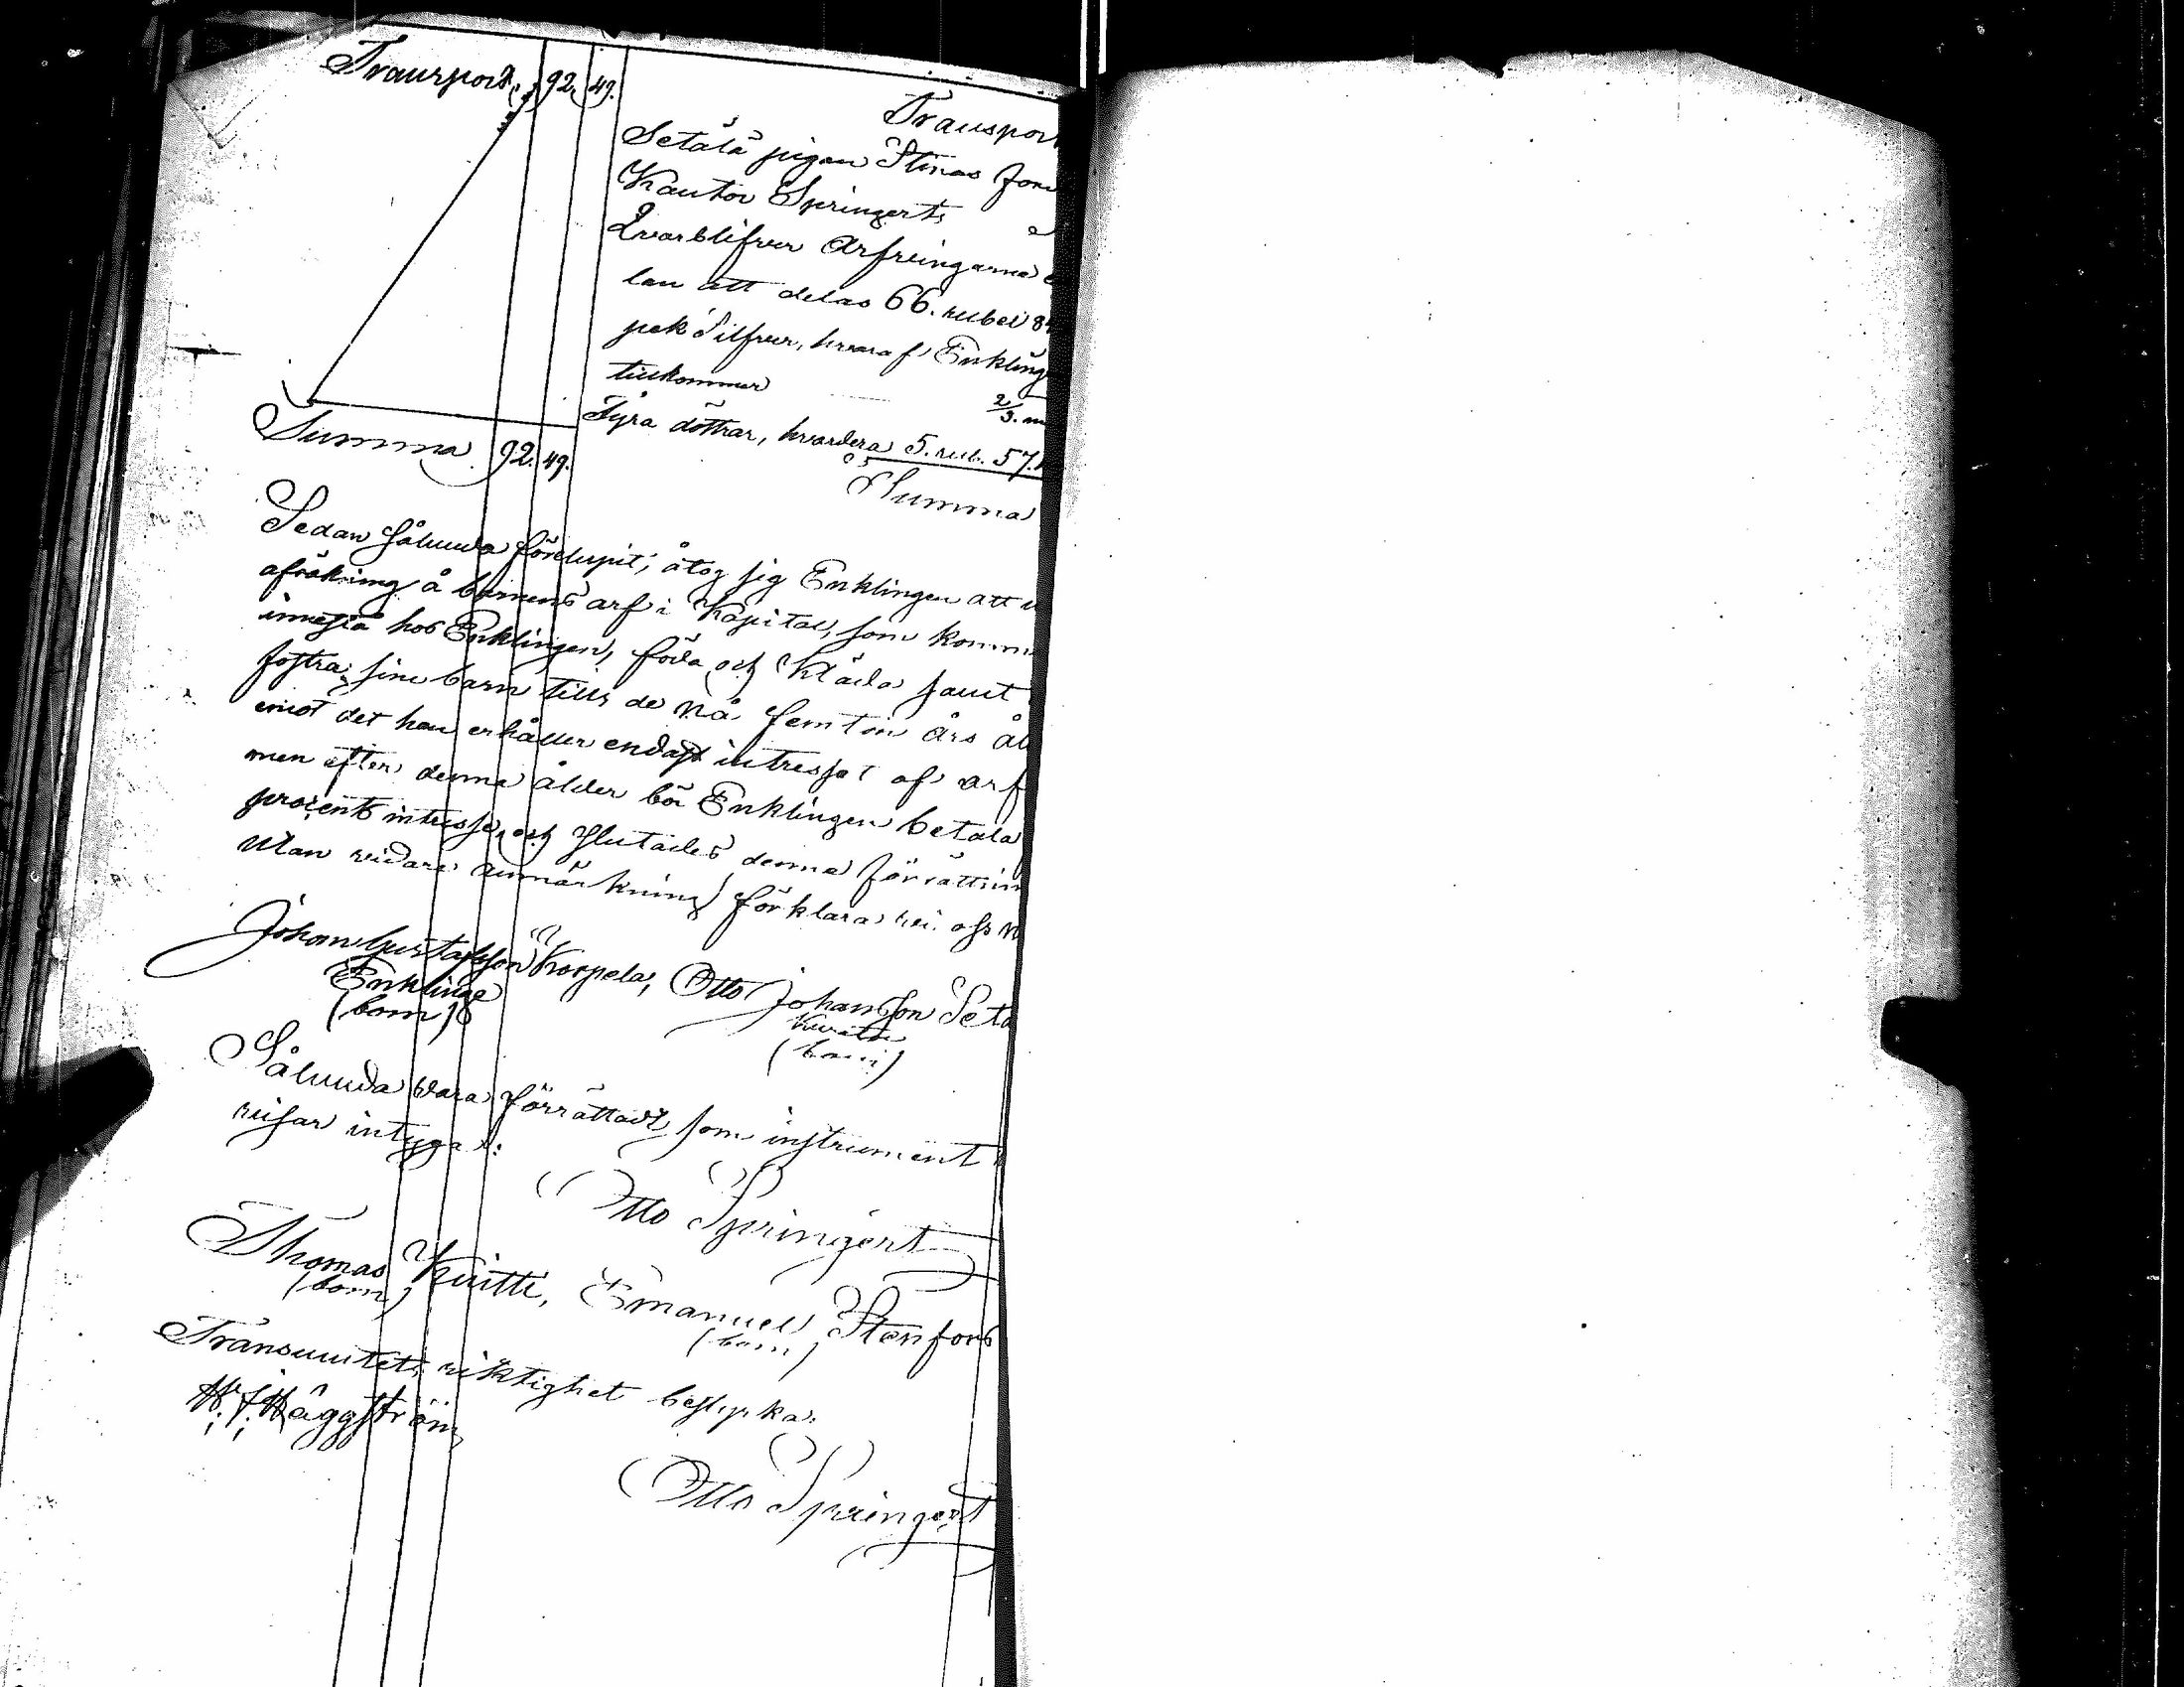 Transport, 92. 49.
Transpor
Setälä pigan Stinas fon
Kantor Springerts
Qvarblifver Arfvingarna e
lan att delas 66. rubel 8
pek Silfver, hvaraf Enkling
tillkommer 2/3. m
Fyra döttrar, hvardera 5. rub. 57.
Summa 92. 49.
Summa
Sedan sålunda förelupit, åtog sig Enklingen att
afräkning å barnens arf i Kapital, som komm
innestå hos Enklingen, föda och Kläda samt
fostra sine barn tills de nå femton års ål
emot det han erhåller endast intresset af arf
men efter denna ålder bör Enklingen betala
procents intresse, och slutades denna förrättnin
utan vidare anmärkning förklara vi oss n
Johan Gustafsson Korpela, Otto Johansson Seta
Enkling Kurator
(bom) (bom)
Sålunda vara förrättadt, som instrument
visar intyga:
Otto Springert
Thomas Knitti, Emanuel Stenfors
(bom) (bom)
Transumtets riktighet bestyrka:
H. J. Häggström
Otto Springert